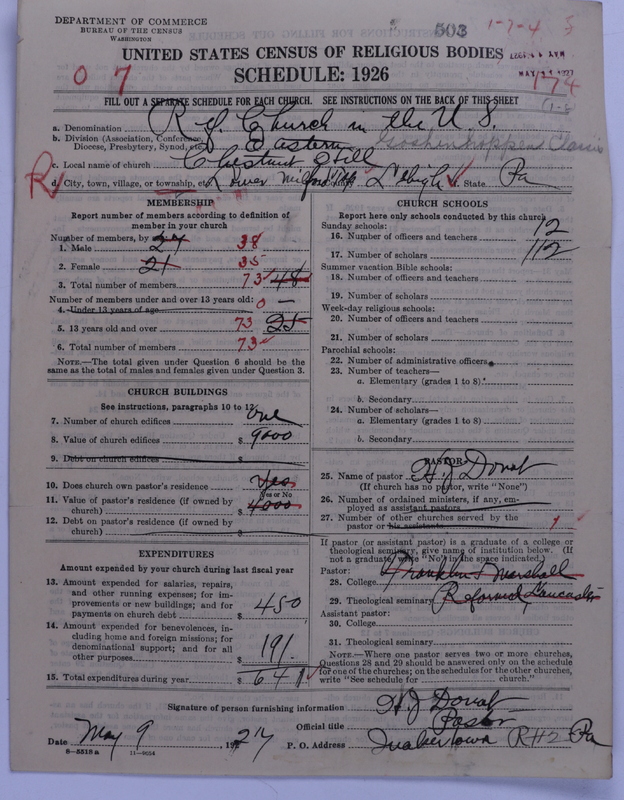 DEPARTMENT OF COMMERCE
BUREAU OF THE CENSUS
WASHINGTON
503 1-7-4
UNITED STATES CENSUS OF RELIGIOUS BODIES
SCHEDULE: 1926
0 7
MAY 1927
174
FILL OUT A SEPARATE SCHEDULE FOR EACH CHURCH. SEE INSTRUCTIONS ON THE BACK OF THIS SHEET
a. Denomination Ref Church in the U S
b. Division (Association, Conference, Diocese, Presbytery, Synod, etc. Eastern Goshenhoppen Classis
c. Local name of church Chestnut Hill
d. City, town, village, or township, etc. Lower Milford Lehigh State Pa
R
MEMBERSHIP
Report number of members according to definition of
member in your church
Number of members, by
1. Male 27 38
2. Female 21 35
3. Total number of members 73 48
Number of members under and over 13 years old:
4. Under 13 years of age 0 —
5. 13 years old and over 73 25
6. Total number of members 73
NOTE.—The total given under Question 6 should be the
same as the total of males and females given under Question 3.
CHURCH BUILDINGS
See instructions, paragraphs 10 to 12
7. Number of church edifices one
8. Value of church edifices $ 9000
9. Debt on church edifices $
10. Does church own pastor's residence Yes
Yes or No
11. Value of pastor's residence (if owned by
church) $ 4000
12. Debt on pastor's residence (if owned by
church) $
EXPENDITURES
Amount expended by your church during last fiscal year
13. Amount expended for salaries, repairs,
and other running expenses; for im-
provements or new buildings; and for
payments on church debt $ 450
14. Amount expended for benevolences, in-
cluding home and foreign missions; for
denominational support; and for all
other purposes 191
15. Total expenditures during year $ 641
CHURCH SCHOOLS
Report here only schools conducted by this church
Sunday schools:
16. Number of officers and teachers 12
17. Number of scholars 112
Summer vacation Bible schools:
18. Number of officers and teachers
19. Number of scholars
Week-day religious schools:
20. Number of officers and teachers
21. Number of scholars
Parochial schools:
22. Number of administrative officers
23. Number of teachers—
a. Elementary (grades 1 to 8)
b. Secondary
24. Number of scholars—
a. Elementary (grades 1 to 8)
b. Secondary
PASTOR
25. Name of pastor H J Donat
(If church has no pastor, write "None")
26. Number of ordained ministers, if any, em-
ployed as assistant pastors
27. Number of other churches served by the
pastor or his assistants
If pastor (or assistant pastor) is a graduate of a college or
theological seminary, give name of institution below. (If
not a graduate, write "No" in the space indicated.)
Pastor:
28. College Franklin & Marshall
29. Theological seminary Reformed Lancaster
Assistant pastor:
30. College
31. Theological seminary
NOTE.—Where one pastor serves two or more churches,
Questions 28 and 29 should be answered only on the schedule
for one of the churches; on the schedules for the other churches,
write "See schedule for church."
Signature of person furnishing information H J Donat
Official title Pastor
Date May 9, 1927 P. O. Address Quakertown R#2 Pa
8—5518a 11—9054